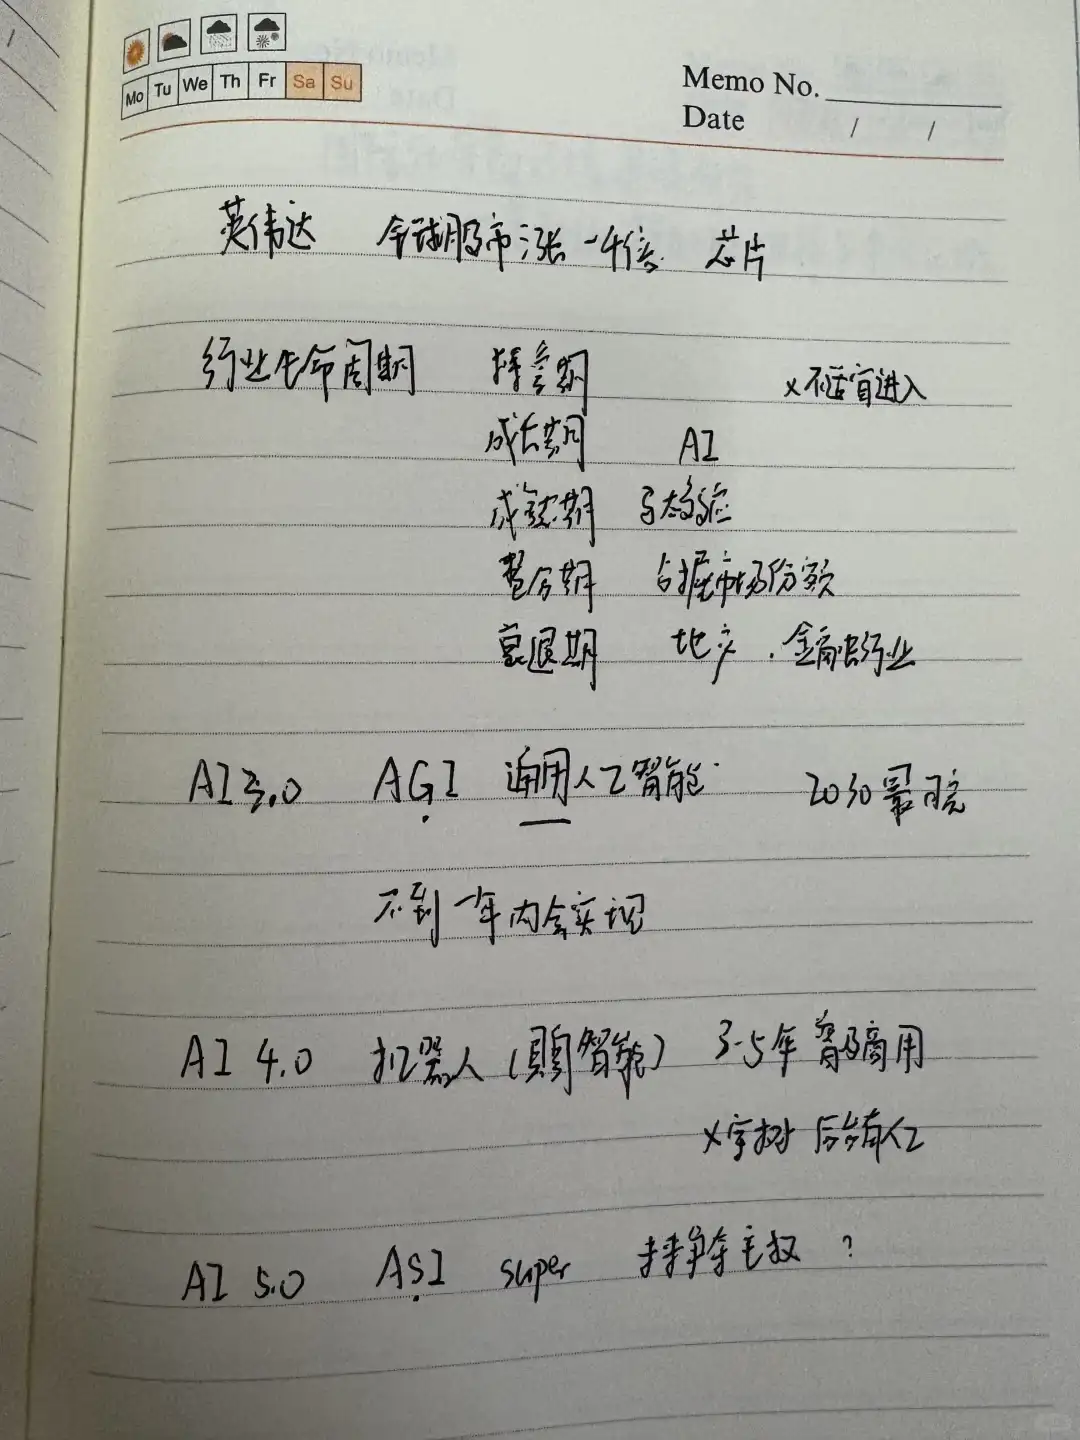 Mo Tu We Th Fr Sa Su
Memo No.
Date / /
英伟达 全球股市涨一倍 芯片
行业生命周期 探索期 x不适宜进入
成长期 AI
成熟期 马太效应
整合期 占据市场份额
衰退期 地产.金融行业
AI 3.0 AGI 通用人工智能 2030最晚
不到一年内会实现
AI 4.0 机器人(具身智能) 3-5年普及商用
x宇树 后台有人
AI 5.0 ASI super 争夺主权?